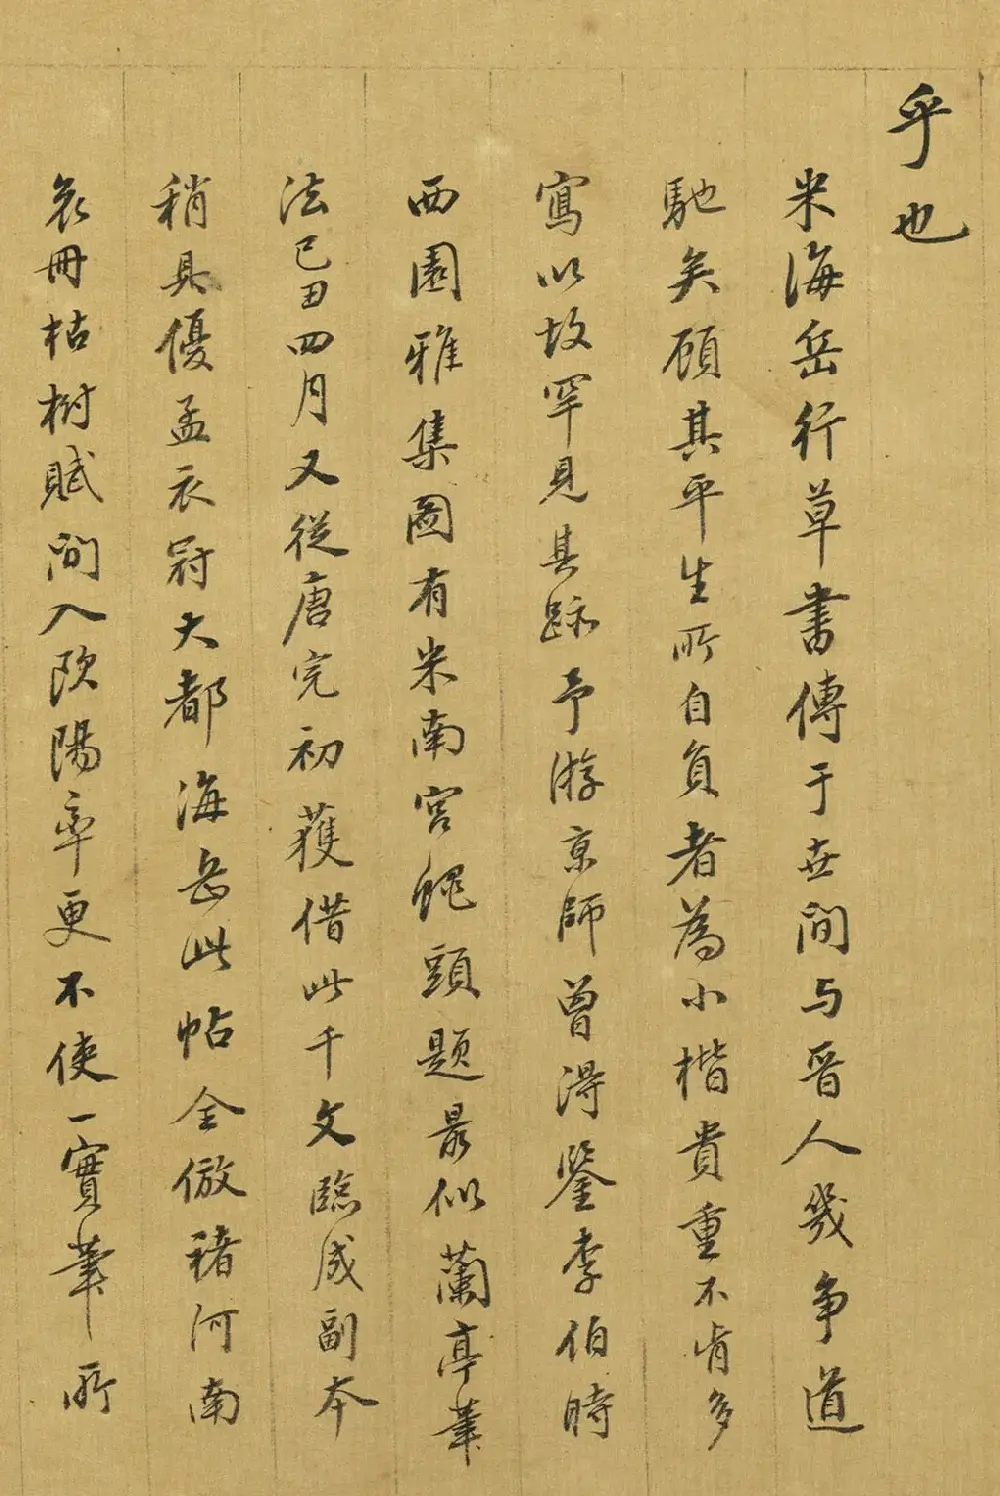 乎也
米海岳行草書傳于世間与晉人幾争道
馳矣顧其平生所自負者為小楷貴重不肯多
寫以故罕見其跡予游京師曾得鑒李伯時
西園雅集圖有米南宮蝇頭題最似蘭亭筆
法己田四月又從唐完初獲借此千文臨成副本
稍具優孟衣冠大都海岳此帖全倣褚河南
哀冊枯樹賦間入欧陽率更不使一實筆所